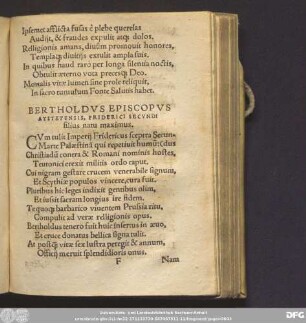 Ipsemet afflictа fusas è plebe querelas
Audit, & fraudes expulit atq; dolos.
Relligionis amans, diuûm promouit honores,
Templaq; diuitijs extulit ampla suis.
In quibus haud rarò per longa silentia noctis,
Obtulit æterno vota precesq; Deo.
Mensuis vitæ lumen sine prole reliquit,
In sacro tumultum Fonte Salutis habet.
BERTHOLDVS EPISCOPVS
AYSTETENSIS, FRIDERICI SECVNDI
filius natu maximus.
CVm tulit Imperij Fridericus sceptra Secun⸗
Marte Palæstinâ qui repetiuit humũ: (dus
Christiadû contra & Romani nominis hostes,
Teutonici erexit militis ordo caput.
Cui nigram gestare crucem venerabile signum,
Et Scythiæ populos vincere, cura fuit.
Pluribus hic leges indixit gentibus olim,
Et iussit sacram longius ire fidem.
Teq́uoq; barbarico viuentem Prussia ritu,
Compulit ad veræ relligionis opus.
Bertholdus tenero fuit huic insertus in æuo,
Et cruce donatus bellica signa tulit.
At postq̃ vitæ sex lustra peregit & annum,
Officij meruit splendidioris onus.
F Nam